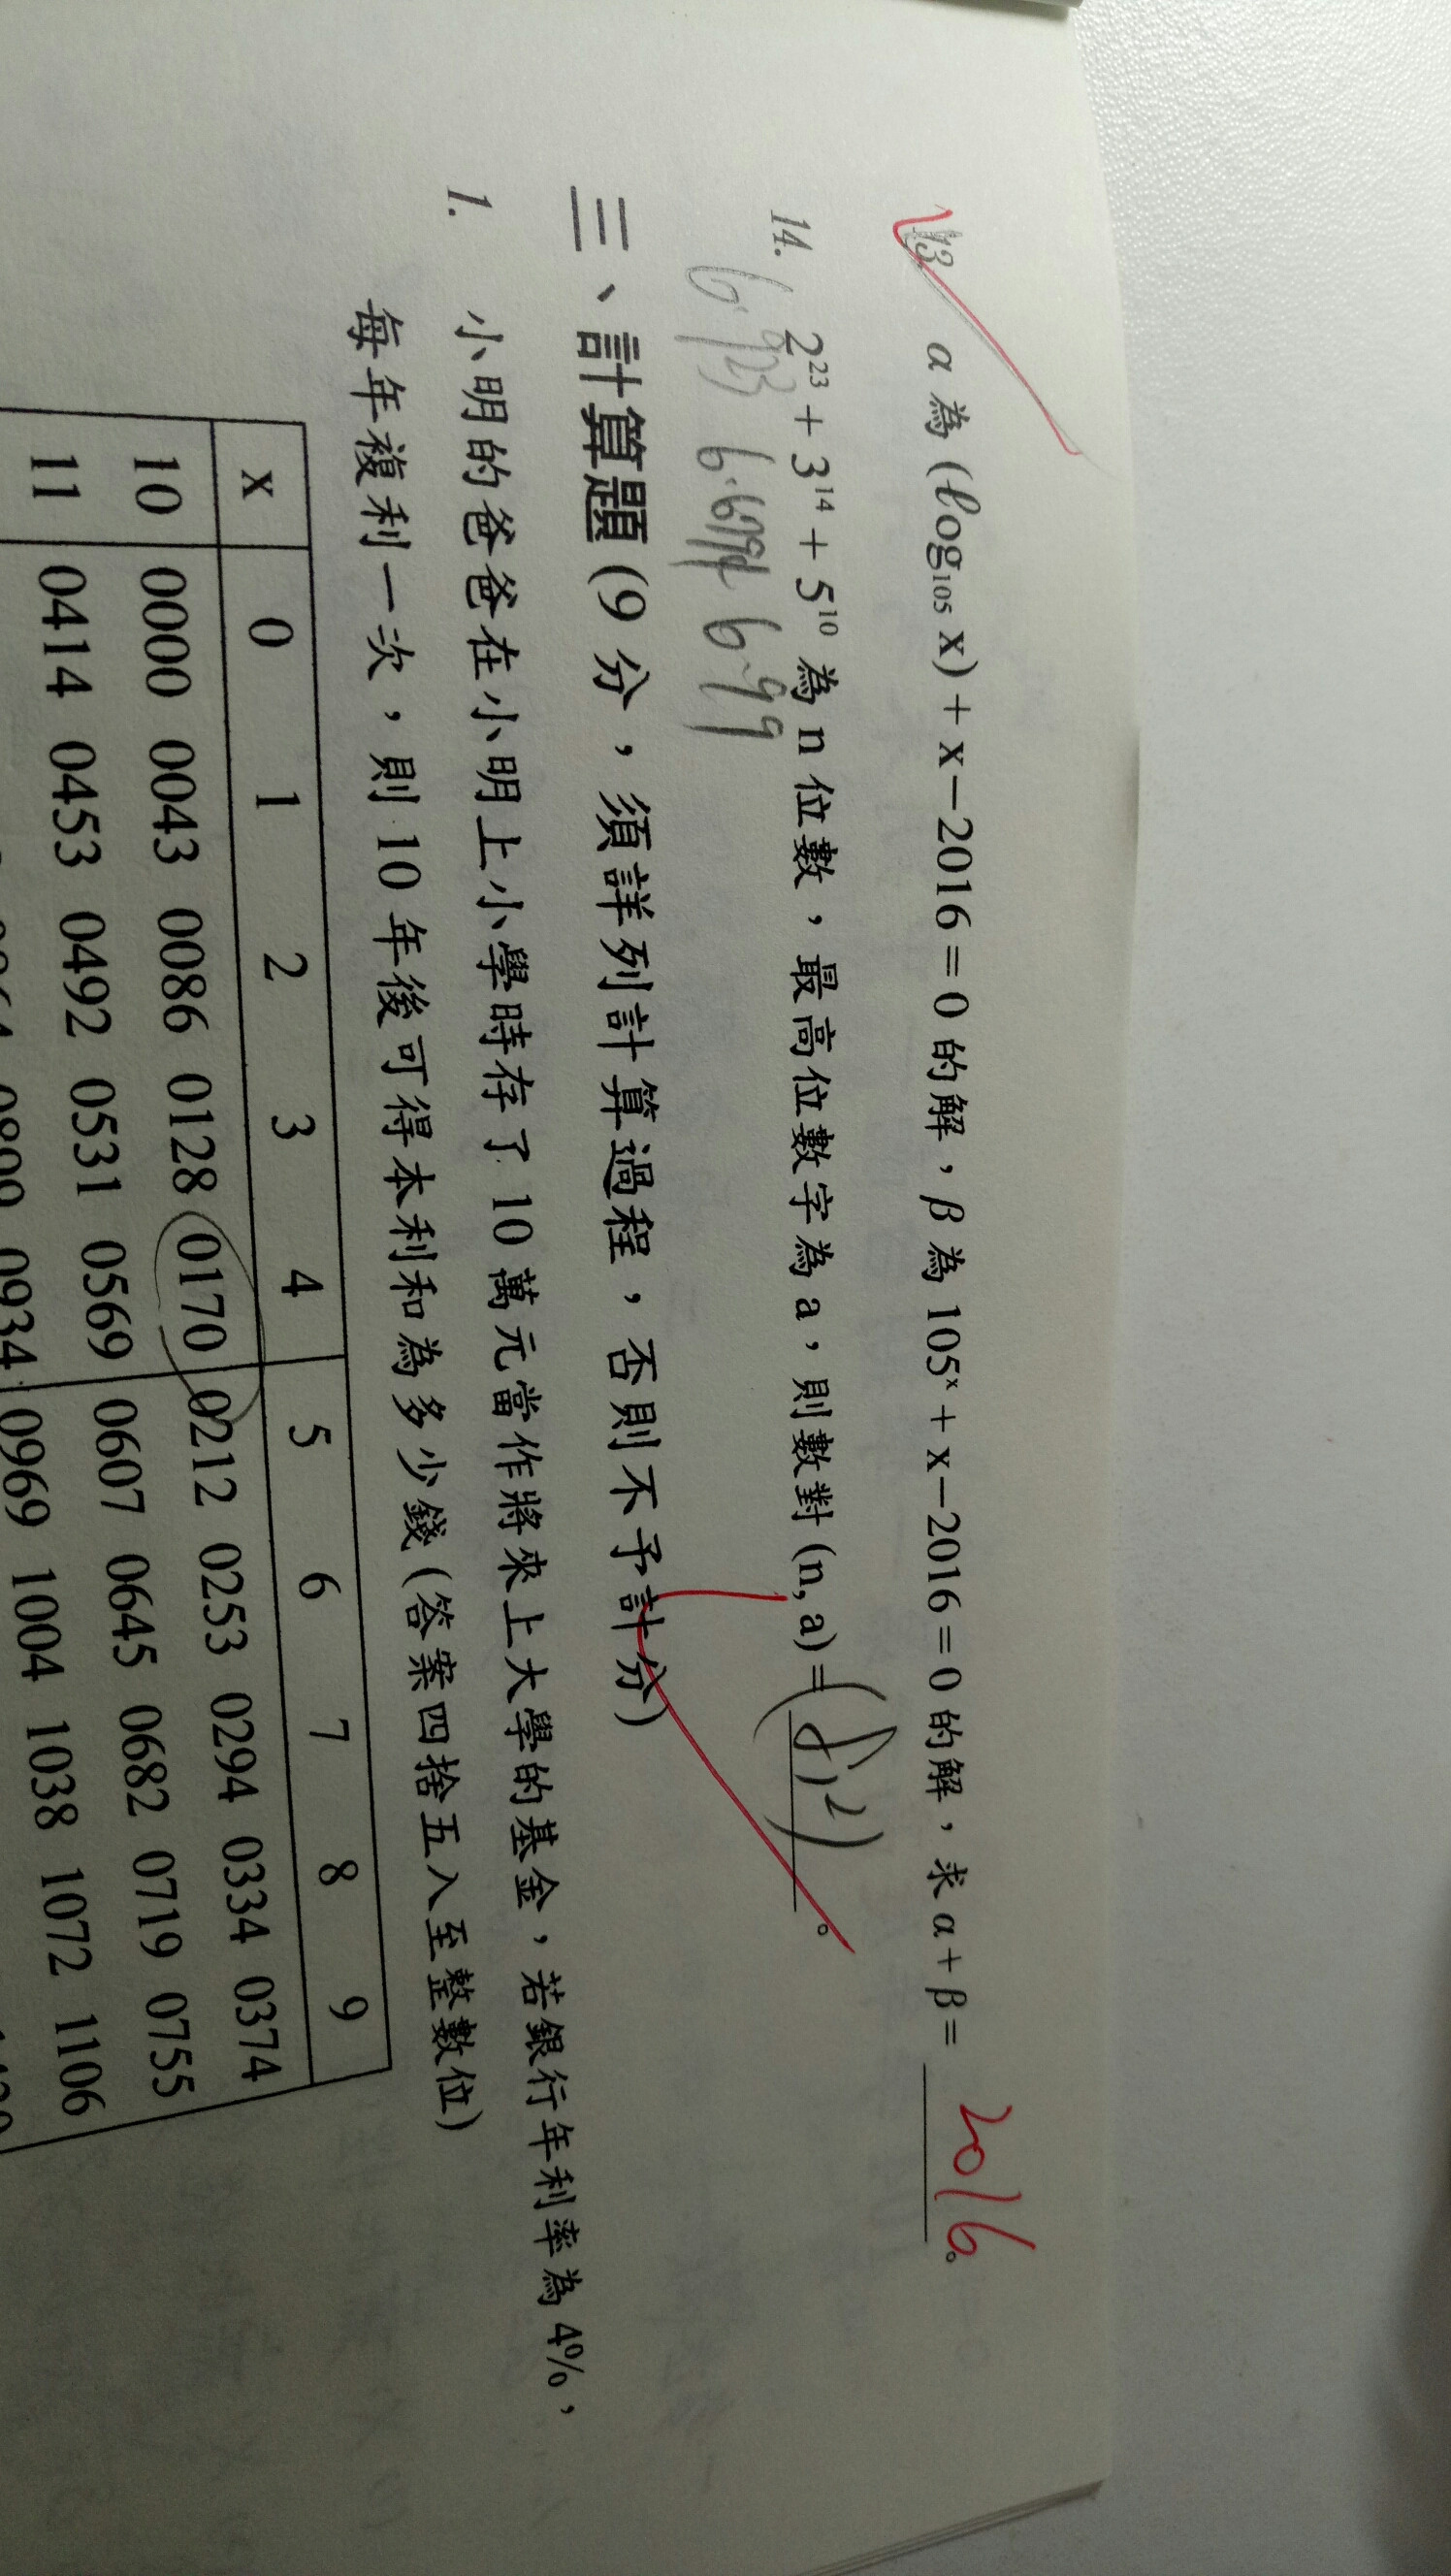 13. α 為 (log₁₀₅ x) + x − 2016 = 0 的解，β 為 105ˣ + x − 2016 = 0 的解，求 α + β = 2016。
14. 2²³ + 3¹⁴ + 5¹⁰ 為 n 位數，最高位數字為 a，則數對 (n, a) = ( , 2)。
6.923 6.6794 6.99
三、計算題 (9 分，須詳列計算過程，否則不予計分)
1. 小明的爸爸在小明上小學時存了 10 萬元當作將來上大學的基金，若銀行年利率為 4%，
每年複利一次，則 10 年後可得本利和為多少錢 (答案四捨五入至整數位)
x 0 1 2 3 4 5 6 7 8 9
10 0000 0043 0086 0128 0170 0212 0253 0294 0334 0374
11 0414 0453 0492 0531 0569 0607 0645 0682 0719 0755
0934 0969 1004 1038 1072 1106